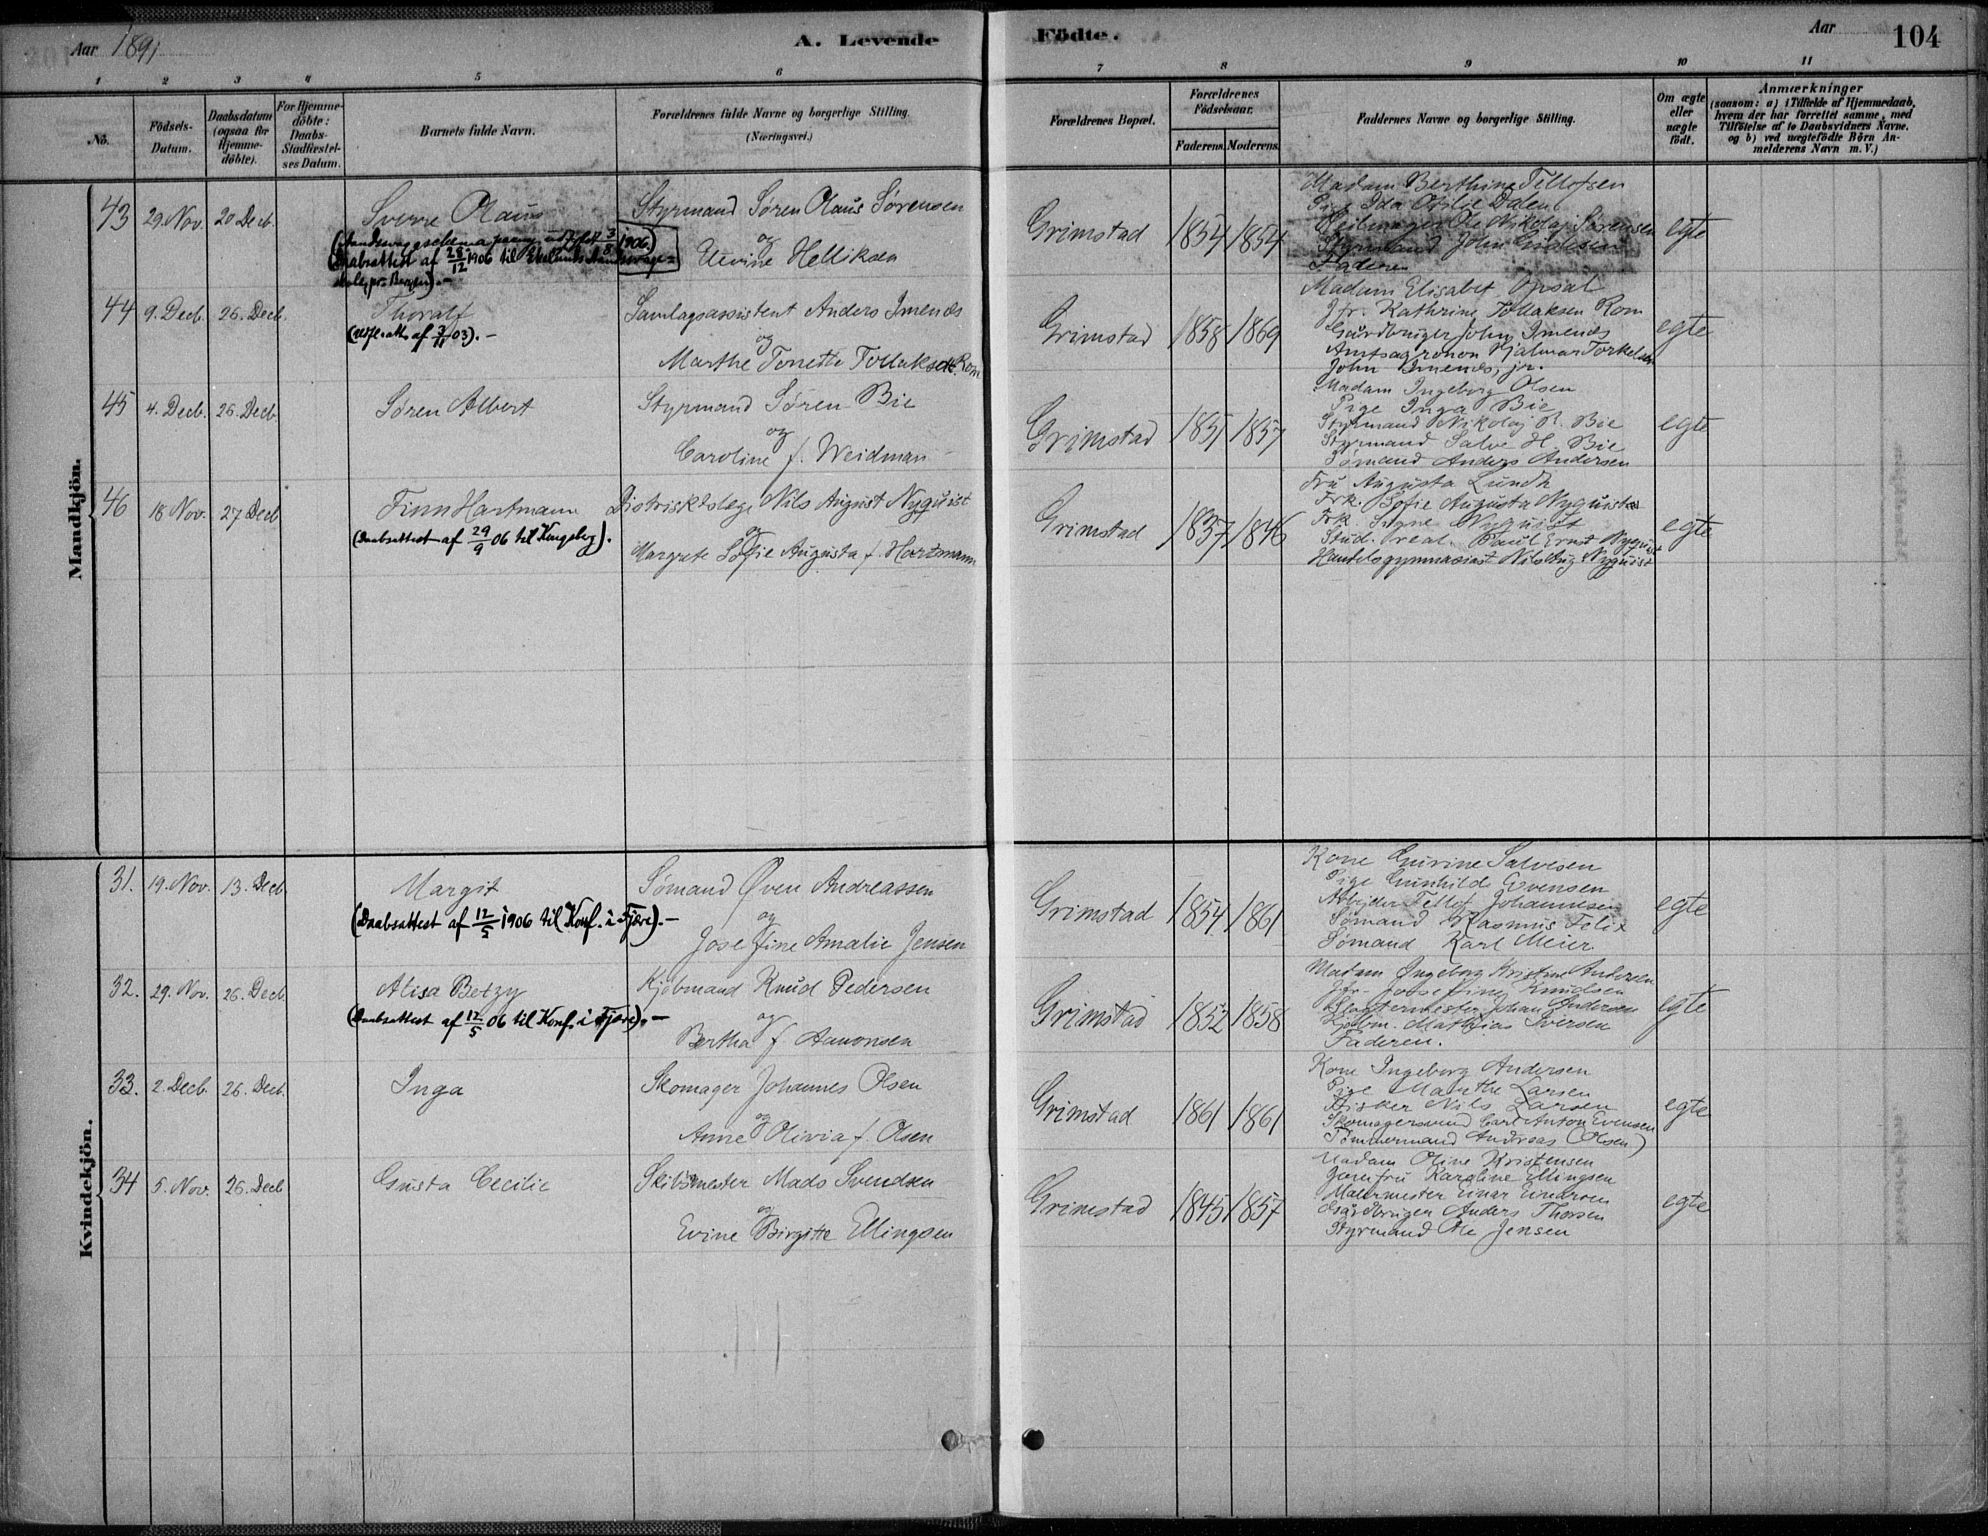 Aar 1891
A. Levende
Fødte.
Aar
104
1 2 3 4 5 6 7 8 9 10 11
No.
Fødsels-Datum.
Daabsdatum (ogsaa for Hjemmedøbte).
For Hjemmedøbte: Daabs-Stadfæstelses Datum.
Barnets fulde Navn.
Forældrenes fulde Navne og borgerlige Stilling. (Næringsvei.)
Forældrenes Bopæl.
Forældrenes Fødselsaar.
Faderens. Moderens.
Faddernes Navne og borgerlige Stilling.
Om ægte eller uægte født.
Anmærkninger
(saasom: a) i Tilfælde af Hjemmedaab, hvem der har forrettet samme, med Tilføielse af to Daabsvidners Navne, og b) ved uægtefødte Børn Anmelderens Navn m. V.)
Mandkjøn.
43 29. Nov. 20 Decb. Sverre Olaus
(Daabsattest af 28/12 1906 til
pr. Bergen). -
Styrmand Søren Olaus Sørensen
og
Helliksen
Grimstad 1854 1854
Madam Berthine Tellefsen
Pige Ida Otilie Dalent
Seilmager Ole Nikolaj Sørensen
Styrmand John
Faderen
egte
44 9. Decb. 26. Decb. Thoralf
af 3/11 03). -
Samlagsassistent Anders Imenes
og
Marthe Tonette Tollaksdt. Rom
Grimstad 1858 1869
Madam Elisabet Opsal
Jfr. Kathrine Tollaksen Rom
Gaardbruger John Imenes
Amtsagronom Hjalmar Torkelsen
John Imenes, jr.
egte
45 4. Decb. 26. Decb. Søren Albert
Styrmand Søren Bie
og
Caroline f. Weidman
Grimstad 1851 1857
Madam Ingeborg Olsen
Pige Inga Bie
Styrmand Nikolaj R. Bie
Styrmand Salve H. Bie
Sømand Anders Andersen
egte
46 18 Nov. 27 Decb. Finn Hartmann
(Daabsattest af 29/9 06 til Kongsberg).
Distriktslæge Nils August Nyquist
og
Margrete Sofie Augusta f. Hartmann
Grimstad 1837 1846
Fru Augusta Lundh
Frk. Sofie Augusta Nyquist
Frk. Signe Nyquist
Stud. real. Paul Ernst Nyquist
Handelsgymnasiast Nils Aug Nyquist
egte
Kvindekjön.
31. 19. Nov. 13. Decb. Margit
(Daabsattest af 12/5 1906 til Konf. i Fjære). -
Sømand Øven Andreassen
og
Josefine Amalie Jensen
Grimstad 1854 1861
Kone Gurine Salvesen
Pige Gunhilds Evensen
Arbeider Tellef Johannesen
Sømand Rasmus Felix
Sømand Karl Meier
egte
32. 29. Nov. 26. Decb. Alisa Betzy
(Daabsattest af 12/5 06 til Konf. i Fjære). -
Kjøbmand Knud Pedersen
og
Bertha f. Aanonsen
Grimstad 1852 1858
Madam Ingeborg Kristine Andersen
Jfr. Josefine Knudsen
Slagtermester Johan Andersen
Kjøbm. Mathias Iversen
Faderen.
egte
33. 2. Decb. 26. Decb. Inga
Skomager Johannes Olsen
og
Anne Olivia f. Olsen
Grimstad 1861 1861
Kone Ingeborg Andersen
Pige Marthe Larsen
Fisker Nils Larsen
Skomagersvend Carl Anton Evensen
Tømmermand Andreas (Olsen)
egte
34 5. Nov. 26. Decb. Gusta Cecilie
Skibsmester Mads Svendsen
og
Evine Birgitte Ellingsen
Grimstad 1845 1857
Madam Oline Kristensen
Jomfru Karoline Ellingsen
Malermester Einar Einersen
Gårdbruger Anders Thorsen
Styrmand Ole Jensen
egte